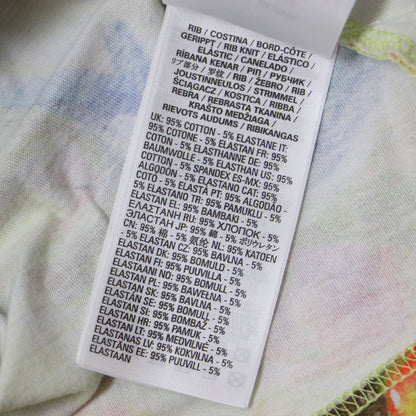 RIB / COSTINA / BORD-CÔTE /
GERIPPT / RIB KNIT / ELÁSTICO /
ELÀSTIC / CANELADO /
RİBANA KENAR / ΡΙΠ / РУБЧИК /
リブ部分 / 罗纹 / RIB / ŽEBRO / RIB /
JOUSTINNEULOS / STRIMMEL /
ŚCIĄGACZ / KOSTICA / RIBBA /
REBRA / REBRASTA TKANINA /
KRAŠTO MEDŽIAGA /
RIEVOTS AUDUMS / RIBIKANGAS
UK: 95% COTTON - 5% ELASTANE IT:
95% COTONE - 5% ELASTAN FR: 95%
COTON - 5% ELASTHANNE DE: 95%
BAUMWOLLE - 5% ELASTHAN US: 95%
COTTON - 5% SPANDEX ES-MX: 95%
ALGODÓN - 5% ELASTANO CAT: 95%
COTÓ - 5% ELASTÀ PT: 95% ALGODÃO -
5% ELASTANO TR: 95% PAMUKLU - 5%
ELASTAN EL: 95% BAMBAKI - 5%
ΕΛΑΣΤΑΝΗ RU: 95% ХЛОПОК - 5%
ЭЛАСТАН JP: 95% 綿 - 5% ポリウレタン
CN: 95% 棉 - 5% 氨纶 NL: 95% KATOEN
- 5% ELASTAN CZ: 95% BAVLNA - 5%
ELASTAN DK: 95% BOMULD - 5%
ELASTAN FI: 95% PUUVILLA - 5%
ELASTAANI NO: 95% BOMULL - 5%
ELASTAN PL: 95% BAWEŁNA - 5%
ELASTAN SE: 95% BOMULL - 5%
ELASTÁN SI: 95% BOMBAŽ - 5%
ELASTAN HR: 95% PAMUK - 5%
ELASTAN LT: 95% MEDVILNĖ - 5%
ELASTANAS LV: 95% KOKVILNA - 5%
ELASTĀNS EE: 95% PUUVILL - 5%
ELASTAAN